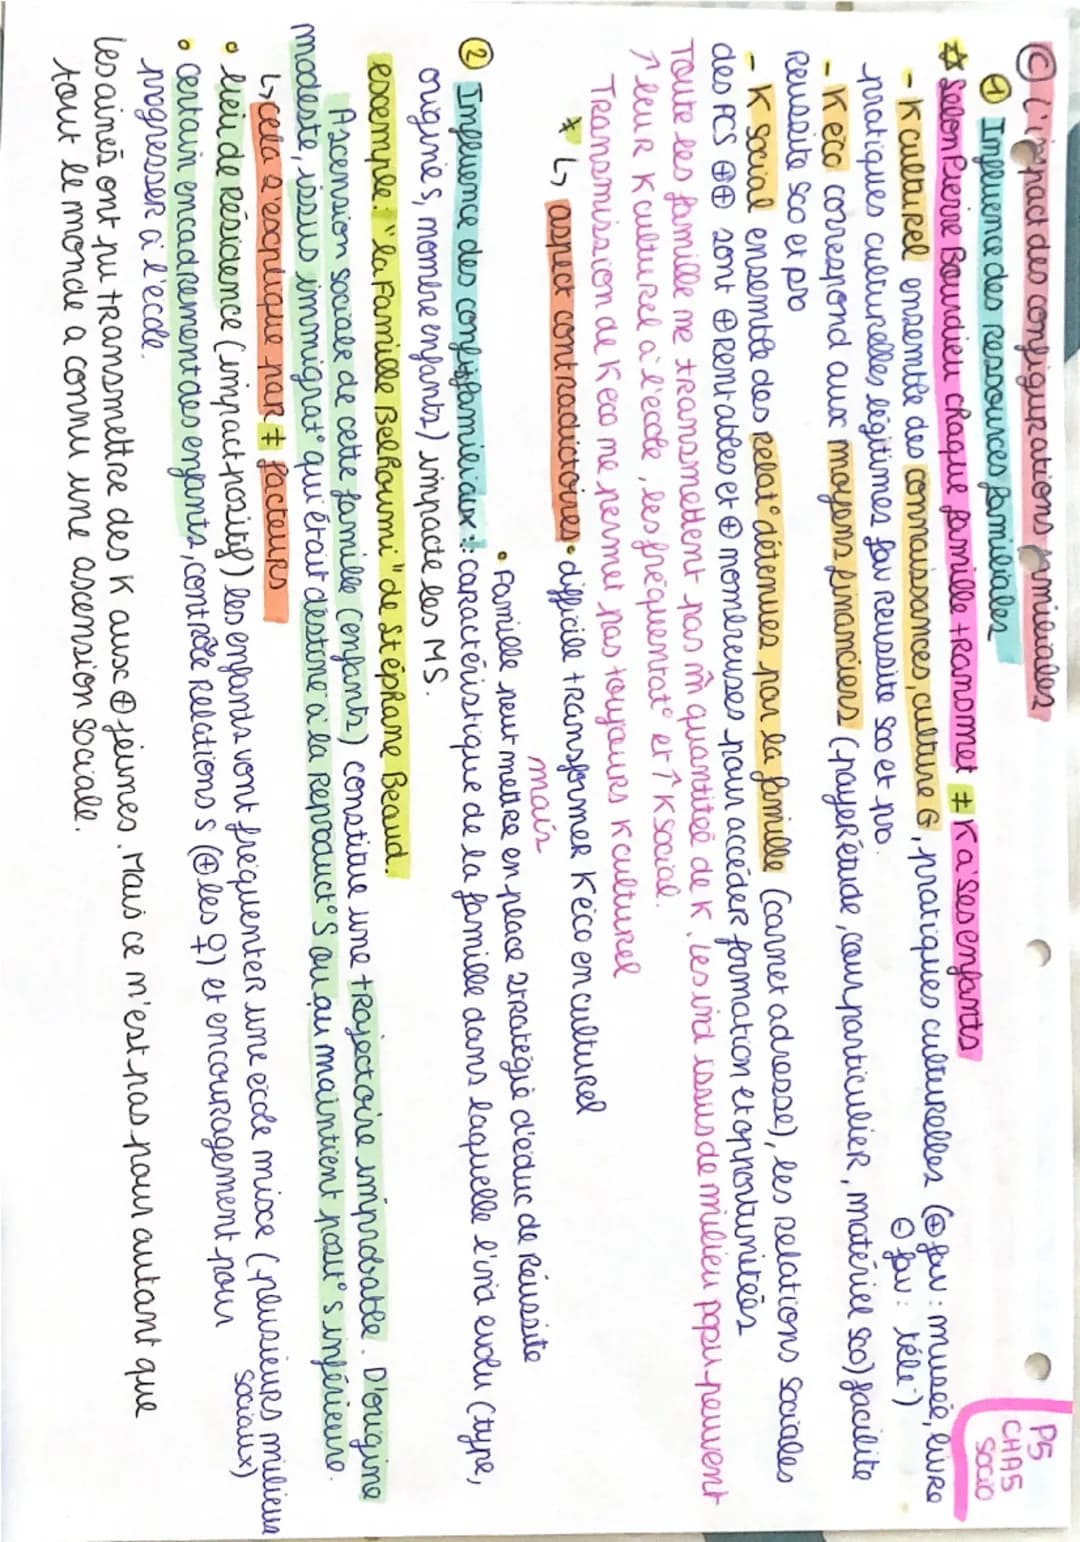 P5
CHA5
SOCIO
C L'impact des configurations familiales
1 Influence des ressources familiales
☆ Selon Pierre Bourdieu chaque famille transmet ≠ K a' ses enfants
- K culturel ensemble des connaissances, culture G, pratiques culturelles (⊕ fav : musée, livre
⊖ fav : télé)
pratiques culturelles légitimes fav reussite sco et pro.
- K éco correspond aux moyens financiers (payer étude, cour particulier, matériel sco) facilite
Reussite sco et pro
- K social ensemble des relat° détenues par la famille (carnet adresse), les relations sociales
des PCS ⊕⊕ sont ⊕ rentables et ⊕ nombreuses pour accéder formation et opportunités
Toute les famille ne transmettent pas m̂ quantiteé de K. les ind issus de milieu popu peuvent
↑ leur K culturel a l'école, les fréquentat° et ↑ K social.
Transmission de K eco ne permet pas toujours K culturel
* ↳ aspect contradictoires • difficile transformer K éco en culturel
mais
• Famille peut mettre en place stratégie d'éduc de Réussite
2 Influence des config familiaux : caractéristique de la famille dans laquelle l'ind evolu (type,
origines, nombre enfants) impacte les MS.
exemple : "la Famille Belhoumi" de Stéphane Beaud.
Ascension sociale de cette famille (enfants) constitue une trajectoire improbable. D'origine
modeste, issus immigrat° qui était destiné à la reproduct° S ou au maintient posit° s inférieure.
↳ cela s'explique par ≠ facteurs
• lieu de Résidence (impact positif) les enfants vont fréquenter une école mixe (plusieurs milieux
sociaux)
• certain encadrement des enfants, contrôle relations S (⊕ les ♀) et encouragement pour
progresser à l'école.
les ainés ont pu transmettre des K aux ⊕ jeunes. Mais ce n'est pas pour autant que
tout le monde a connu une ascension sociale.